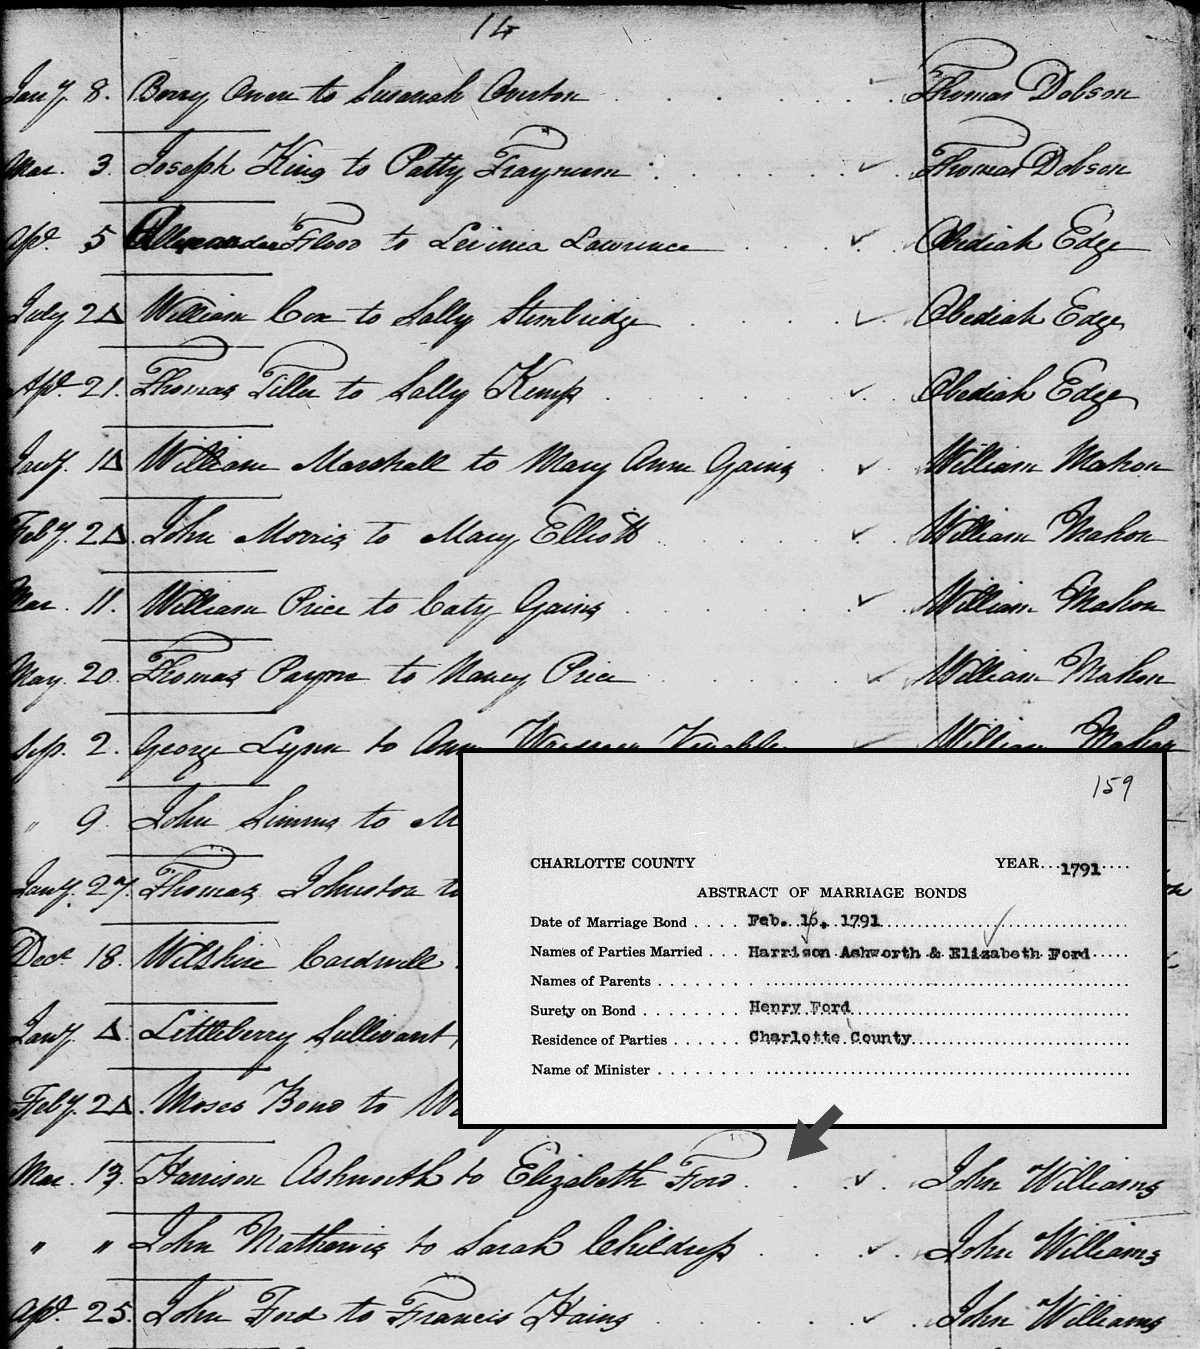 14
Jany 8. Berry Owen to Susanah Overton . . . . . . Thomas Dobson
Mar. 3. Joseph King to Patty Fraynum . . . . . Thomas Dobson
Apl. 5 Flood to Levinia Lawrence . . . Obediah Edge
July 24 William Cox to Sally Stimbridge . . . . Obediah Edge
Apl. 21. Thomas Tiller to Sally Kemp . . . . . Obediah Edge
Jany. 14 William Marshall to Mary Ann Gains . William Mahon
Feby. 24. John Morris to Mary Elliott . . . . . William Mahon
Mar. 11. William Price to Caty Gains . . . . . William Mahon
May. 20. Thomas Payne to Nancy Price . . . . William Mahon
Sep. 2. George Lynn to Ann William Mahon
" 9. John Simms to M
Jany. 27. Thomas Johnston to
Decr 18. Wilshire Cardwell
Jany. 4. Littleberry Sullivant
Feby. 24. Moses Bond to
159
CHARLOTTE COUNTY YEAR...1791....
ABSTRACT OF MARRIAGE BONDS
Date of Marriage Bond . . . . Feb. 16, 1791
Names of Parties Married . . . Harrison Ashworth & Elizabeth Ford
Names of Parents . . . . . . . .
Surety on Bond . . . . . . . . Henry Ford
Residence of Parties . . . . . . Charlotte County
Name of Minister . . . . . . . .
Mar. 13. Harrison Ashworth to Elizabeth Ford . . . John Williams
" " John Mathewis to Sarah Childress . . . John Williams
Apl. 25. John Ford to Francis Hains . . . . John Williams